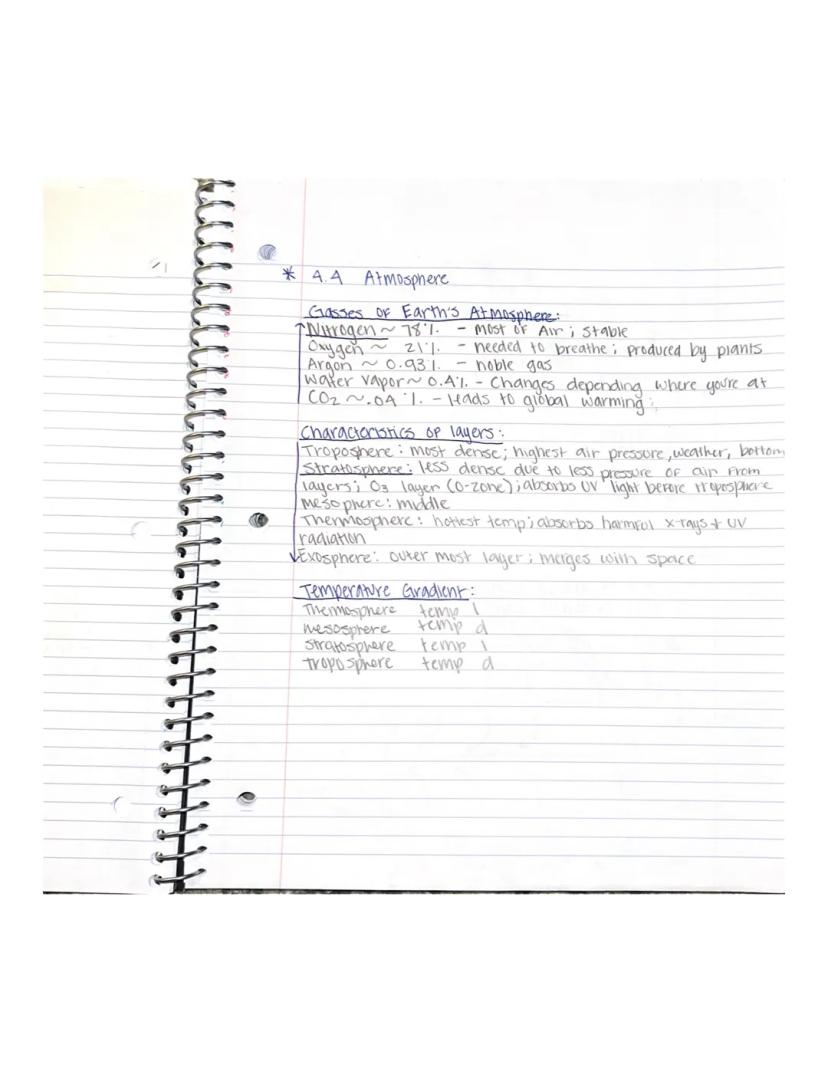 * 4.4 Atmosphere
Gasses of Earth's Atmosphere:
Nitrogen ~ 78% - most of Air; stable
Oxygen ~ 21% - needed to breathe; produced by plants
Argon ~ 0.93% - noble gas
Water vapor ~ 0.4% - Changes depending where you're at
CO2 ~ .04 % - leads to global warming;
Characteristics of layers:
Troposhere: most dense; highest air pressure, weather, bottom
Stratosphere: less dense due to less pressure of air from
layers; O3 layer (O-zone); absorbs UV light before troposphere
mesophere: middle
Thermosphere: hottest temp; absorbs harmful x-rays + UV
radiation
Exosphere: outer most layer; merges with space
Temperature Gradient:
Thermosphere temp I
mesosphere temp d
stratosphere temp I
troposphere temp d